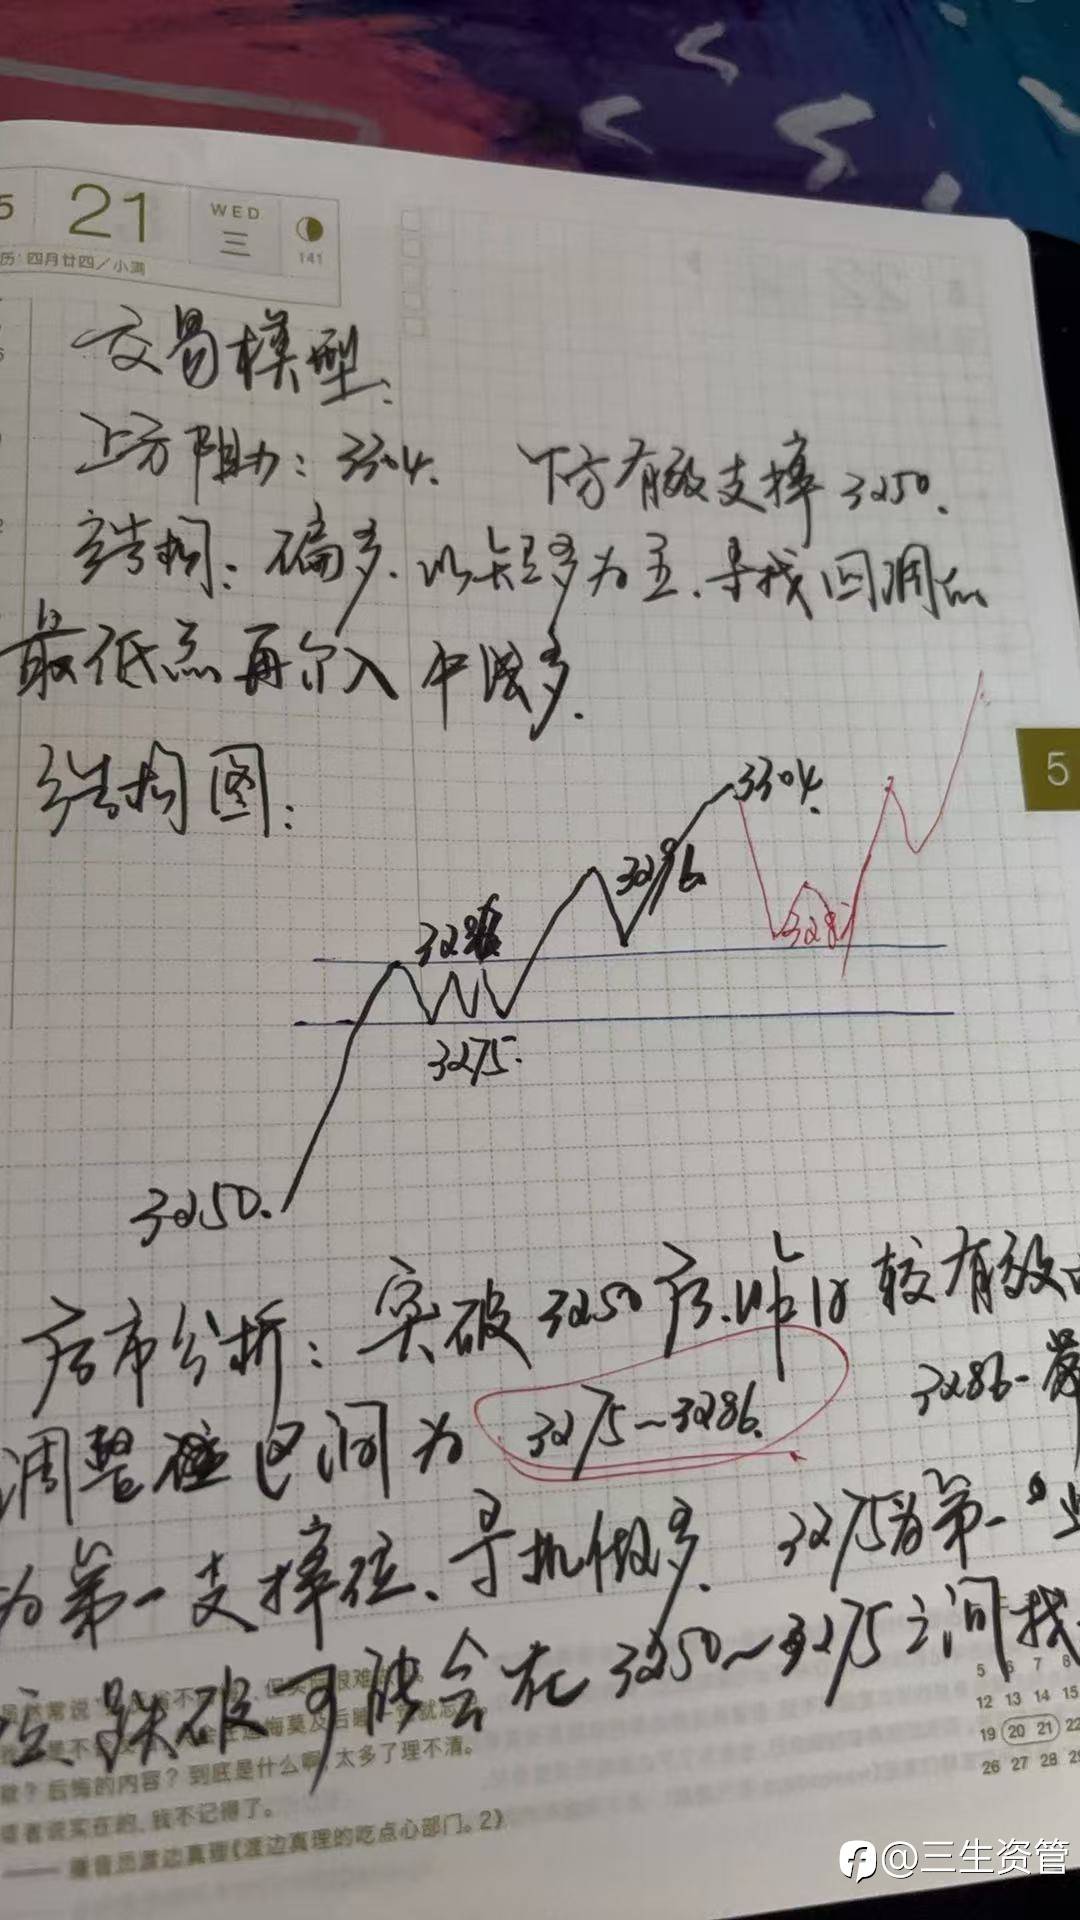 5 21 WED 三 141
历:四月廿四／小满
交易模型:
上方阻力: 3304. 下方有效支撑 3250.
结构: 偏多. 以短多为主. 寻找回调的
最低点再介入中线多.
结构图:
3304.
3296.
3286
328
3275.
3250.
5
后市分析: 突破3250后.昨日较有效的
调整 区间为 3275~3286. 3286-
为第一支撑位、寻机做多. 3275为第一
位 跌破可能会在3250~3275之间找
5 6 7 8
12 13 14 15
19 20 21 22
26 27 28 29
常说
后悔的内容？到底是什么啊 太多了理不清。
实在的，我不记得了。
渡边真理《渡边真理的吃点心部门。2》
@三生资管